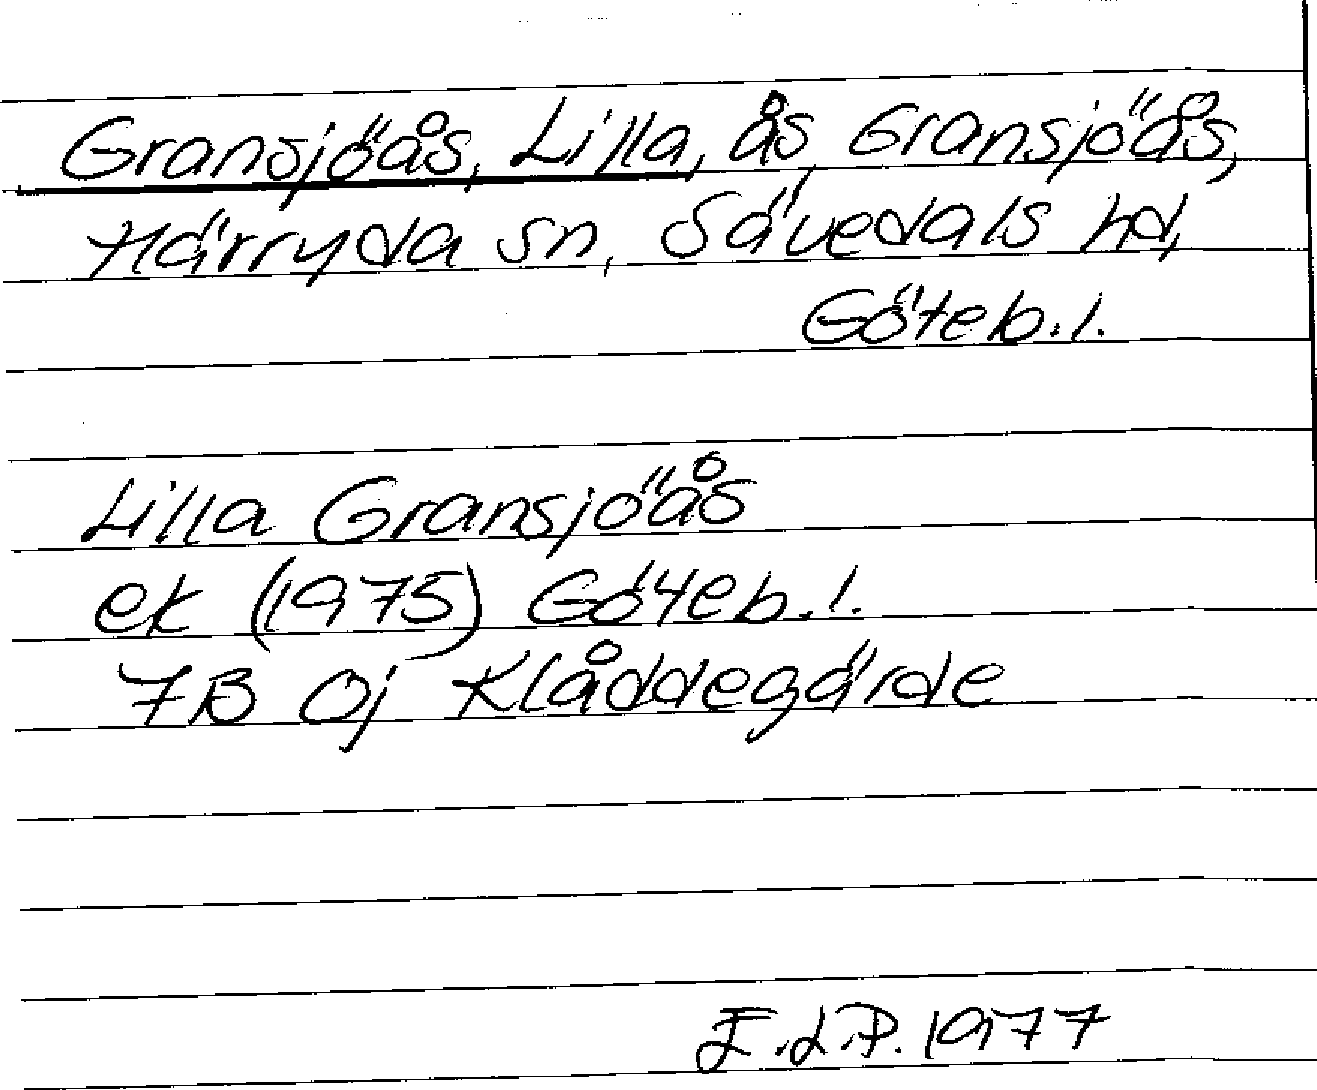 Gransjöås, Lilla, ås, Gransjöås,
Härryda sn, Sävedals hd,
Göteb. l.
Lilla Gransjöås
ek (1975) Göteb. l.
7B 0j Klåddegärde
E.L.P. 1977